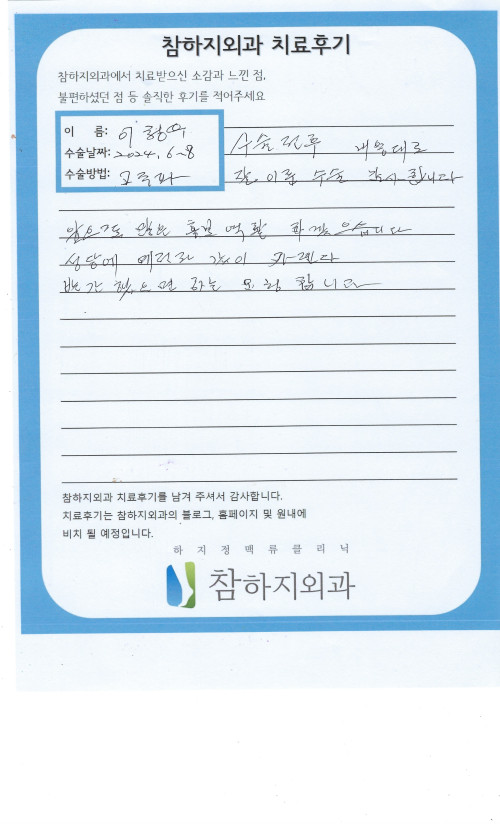 참하지외과 치료후기
참하지외과에서 치료받으신 소감과 느낀 점,
불편하셨던 점 등 솔직한 후기를 적어주세요
이 름: 이형우
수술날짜: 2024, 6~8
수술방법: 고주파
수술전후 내용대로
잘 이룸 수술 감사합니다
앞으로도 많은 홍보 역할 하겠습니다
성당에
하는 합니다
참하지외과 치료후기를 남겨 주셔서 감사합니다.
치료후기는 참하지외과의 블로그, 홈페이지 및 원내에
비치 될 예정입니다.
하지정맥류클리닉
참하지외과